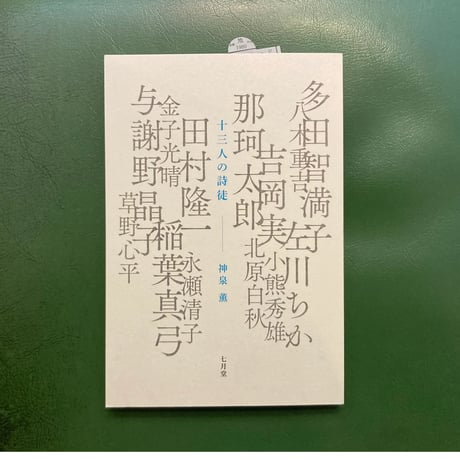 多田智満子
八木重吉
左川ちか
吉岡実
小熊秀雄
那珂太郎
北原白秋
十三人の詩徒
神泉 薫
七月堂
田村隆一
永瀬清子
金子光晴
稲葉真弓
与謝野晶子
草野心平